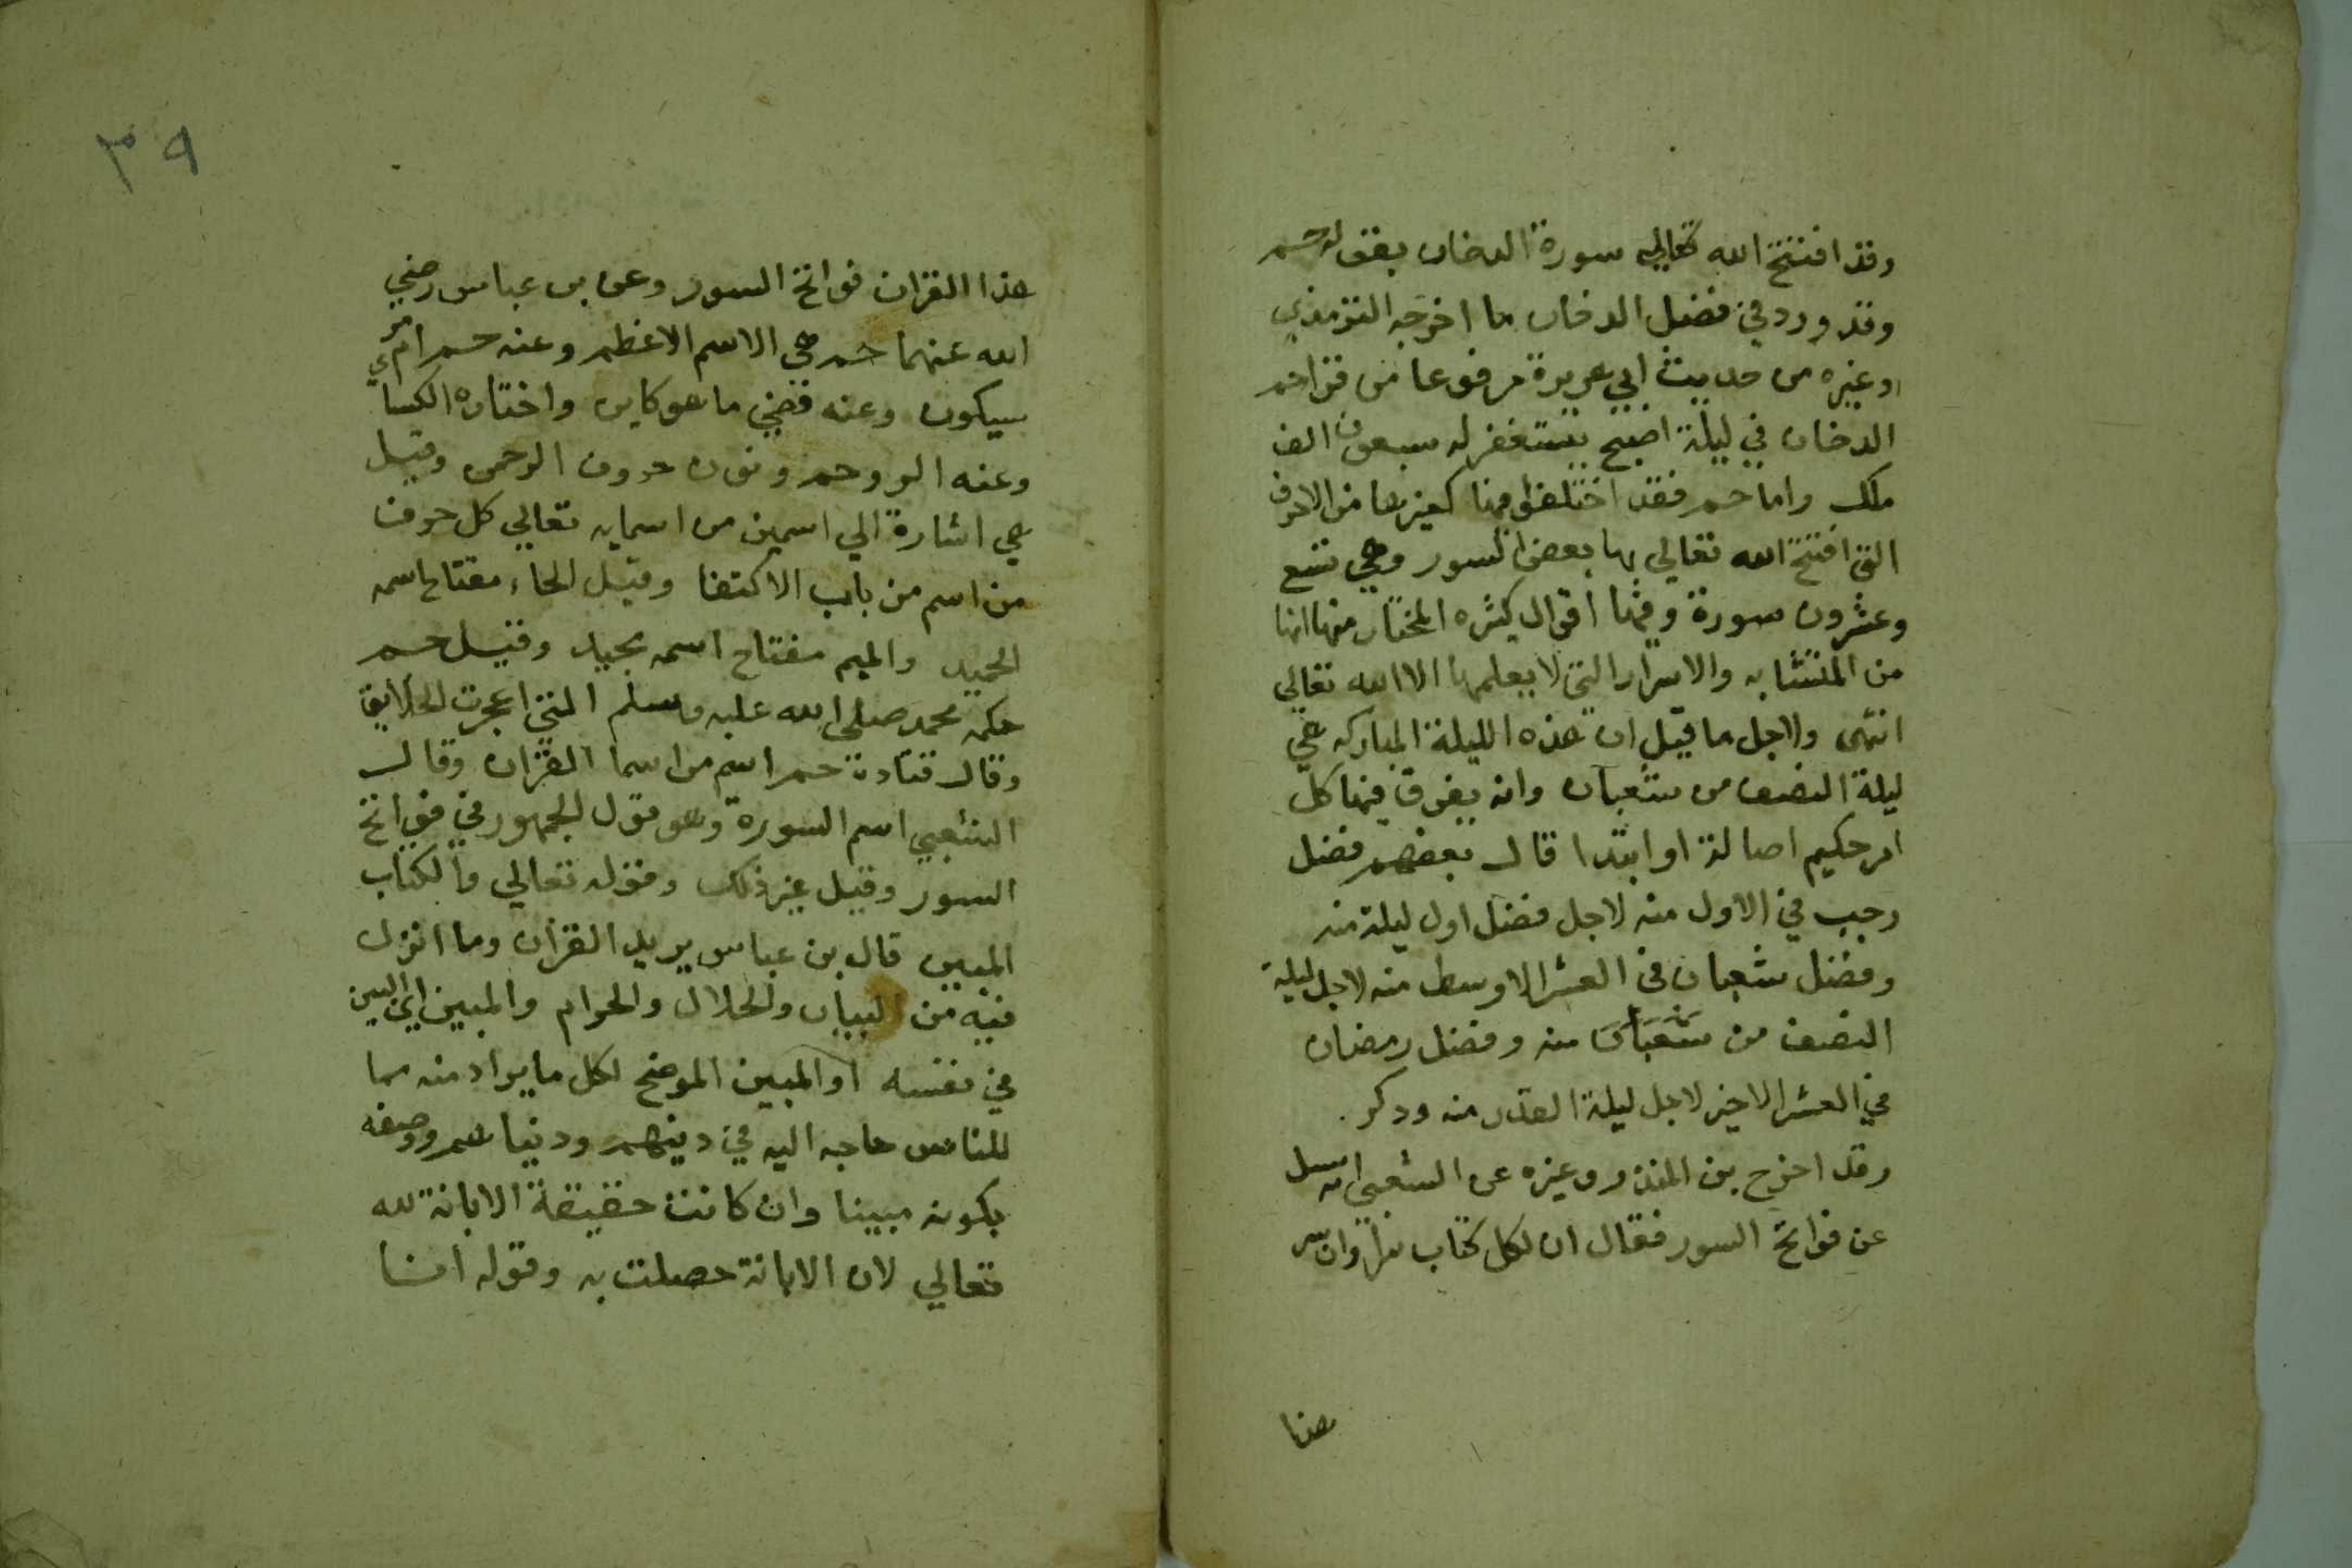 وقد افتتح الله تعالي سورة الدخان بقوله حم
وقد ورد في فضل الدخان ما اخرجه الترمذي
وغيره من حديث ابي هريرة مرفوعا من قرا حم
الدخان في ليلة اصبح يستغفر له سبعون الف
ملك واما حم فقد اختلفوا فيها كغيرها من الاحرف
التي افتتح الله تعالي بها بعض السور وهي تسع
وعشرون سورة وفيها اقوال كثره المختار منها انها
من المتشابه والاسرار التي لا يعلمها الا الله تعالي
انتهى ولاجل ما قيل ان هذه الليلة المباركه هي
ليلة النصف من شعبان وانه يفرق فيها كل
امر حكيم اصالة او ابتدا قال بعضهم فضل
رجب في الاول منه لاجل فضل اول ليلة منه
وفضل شعبان في العشر الاوسط منه لاجل ليلة
النصف من شعبان منه وفضل رمضان
في العشر الاخير لاجل ليلة القدر منه وذكر
وقد اخرج بن المنذر وغيره عن الشعبي انه سيل
عن فواتح السور فقال ان لكل كتاب سرا وان سر
هذا
٣٩
هذا القران فواتح السور وعن بن عباس رضي
الله عنهما حم هي الاسم الاعظم وعنه حم امر
سيكون وعنه قضي ما هو كاين واختاره الكساي
وعنه الر وحم ونون حروف الرحمن وقيل
هي اشارة الي اسمين من اسمايه تعالي كل حرف
من اسم من باب الاكتفا وقيل الحاء مفتاح اسمه
الحميد والميم مفتاح اسمه مجيد وقيل حم
حكمه محمد صلي الله عليه وسلم التي اعجزت الخلايق
وقال قتادة حم اسم من اسما القران وقال
الشعبي اسم السورة وهو قول الجمهور في فواتح
السور وقيل غير ذلك وقوله تعالي والكتاب
المبين قال بن عباس يريد القران وما انزل
فيه من البيان والحلال والحرام والمبين اي البين
في نفسه او المبين الموضح لكل ما يراد منه مما
للناس حاجه اليه في دينهم ودنياهم ووصفه
بكونه مبينا وان كانت حقيقة الابانة لله
تعالي لان الابانة حصلت به وقوله انا